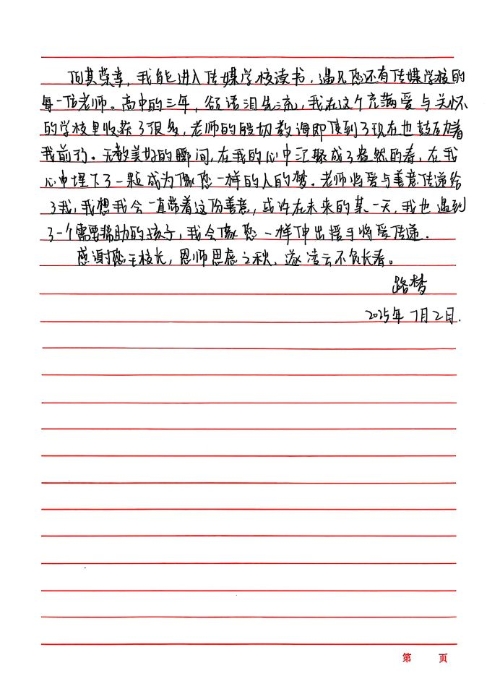 何其荣幸，我能进入传媒学校读书，遇见您还有传媒学校的
每一位老师。高中的三年，欲语泪先流，我在这个充满爱与关怀
的学校里收获了很多，老师的殷切教诲即使到了现在也鼓励着
我前行。无数美好的瞬间，在我的心中沉聚成了盎然的春，在我
心中埋下了一颗成为像您一样的人的梦。老师将爱与善意传递给
了我，我想我会一直带着这份善意，或许在未来的某一天，我也遇到
了一个需要帮助的孩子，我会像您一样伸出援手将爱传递。
感谢您王校长，恩师思虑之秋，遂凌云不负长春。
路梦
2025年7月2日.
第 页